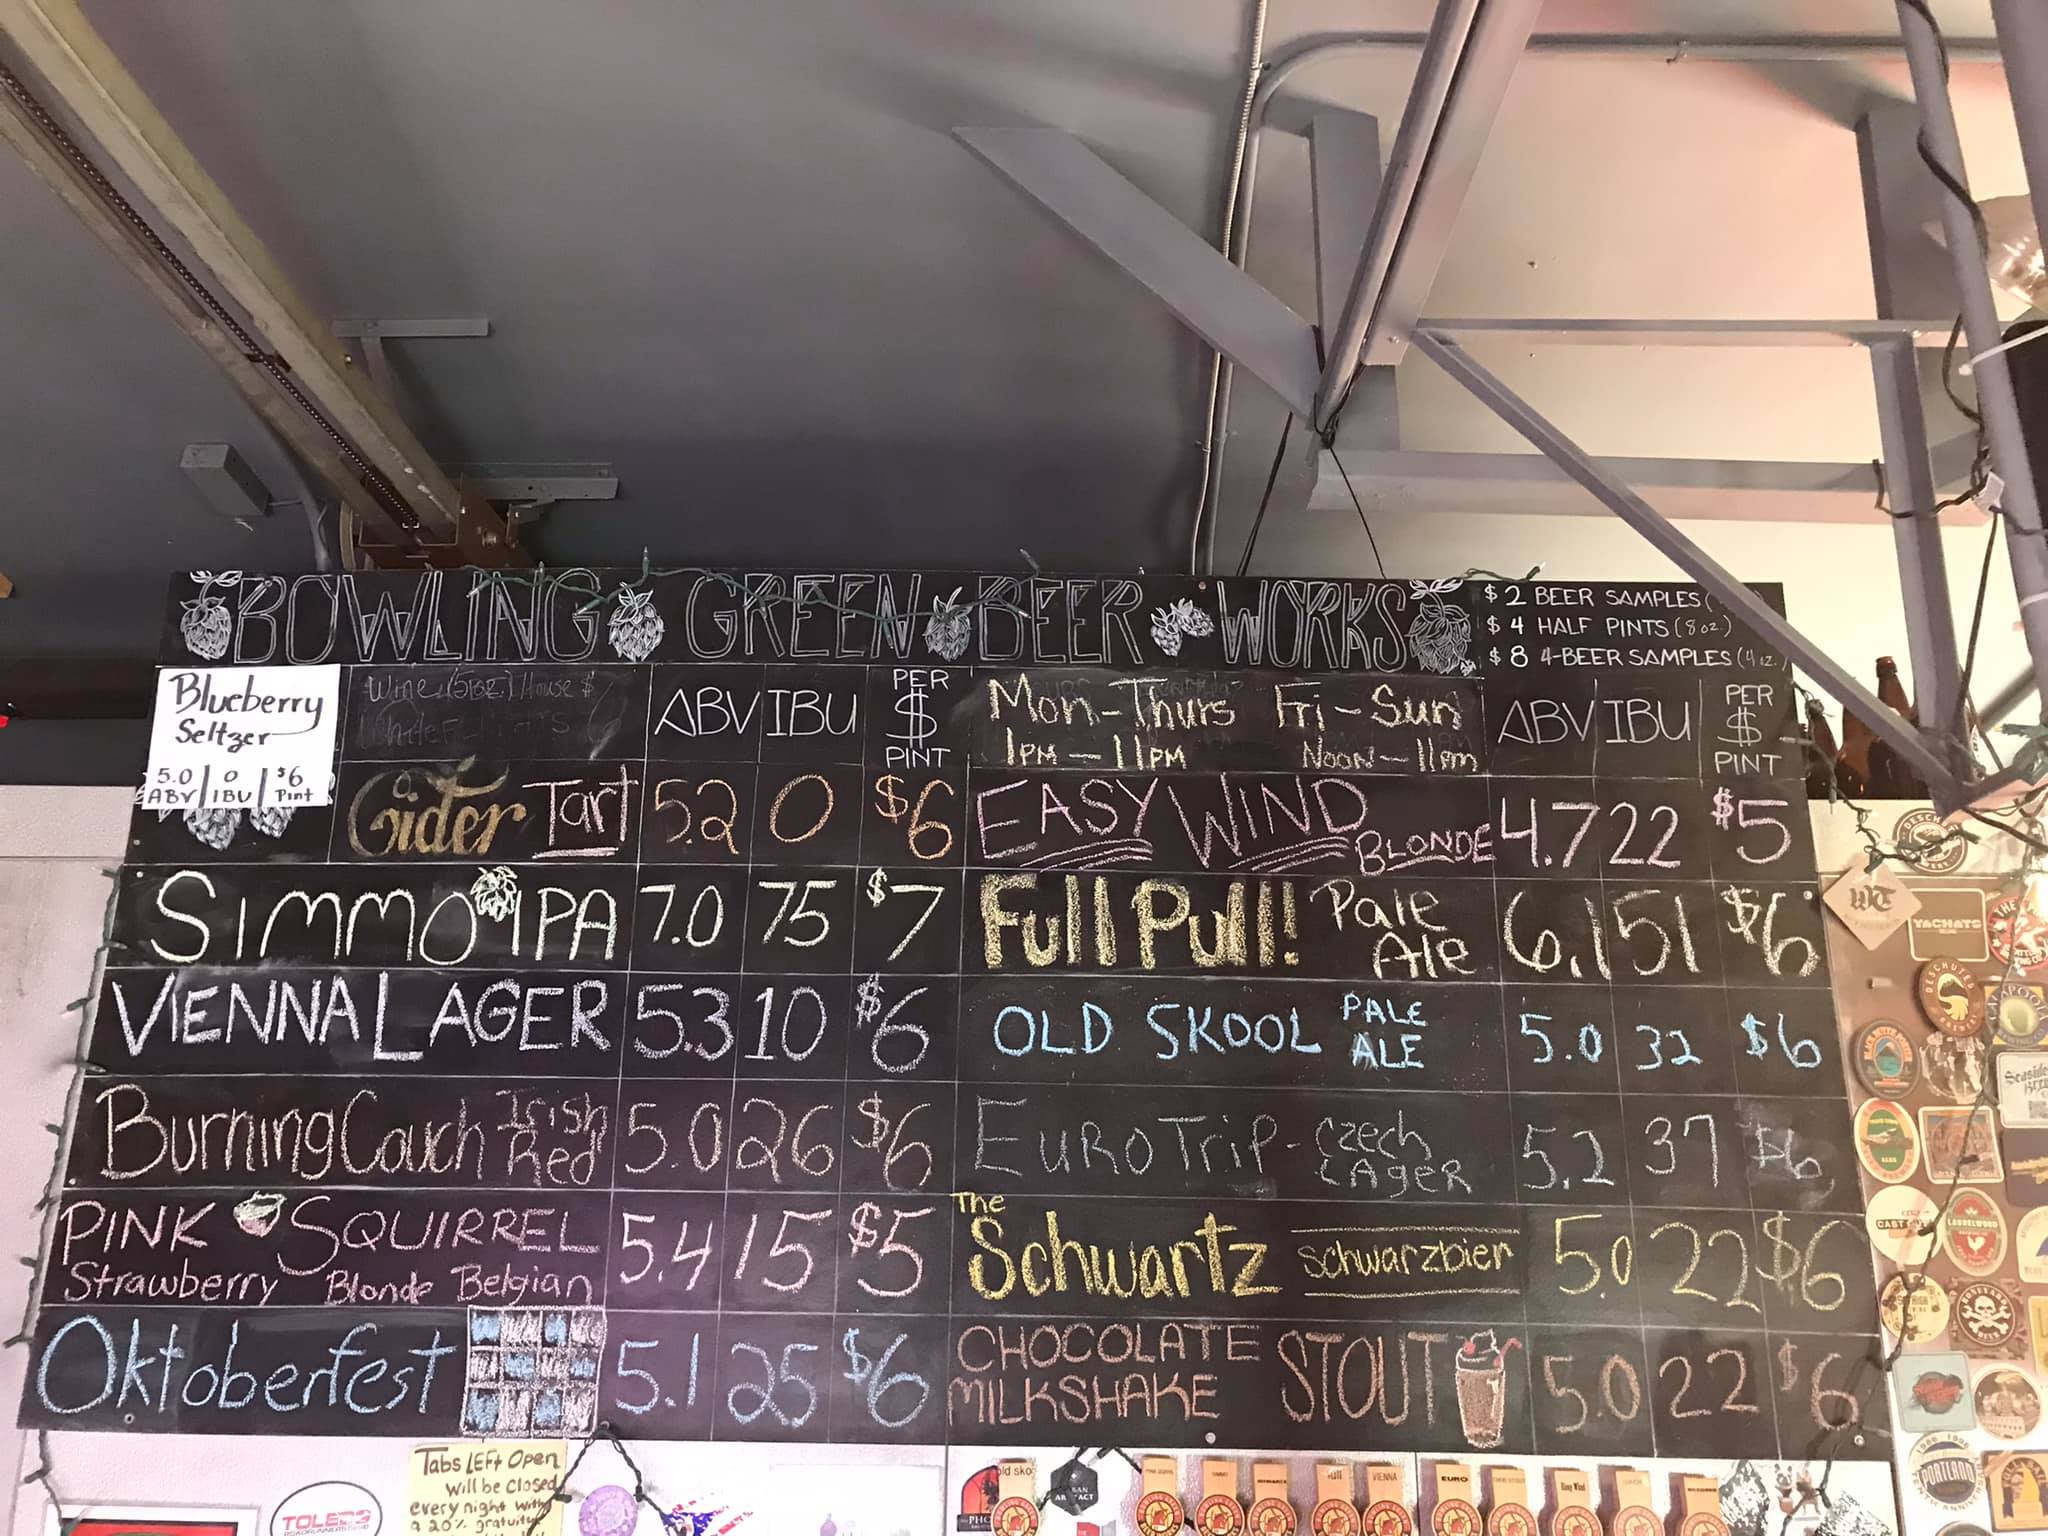 BOWLING GREEN BEER WORKS
$2 BEER SAMPLES
$4 HALF PINTS (8 oz.)
$8 4-BEER SAMPLES (4 oz.)
Blueberry
Seltzer
5.0 0 $6
ABV IBU Pint
Wine (5oz.) House $
ABV IBU PER $ PINT
Cider Tart 5.2 0 $6
SIMMO IPA 7.0 75 $7
VIENNA LAGER 5.3 10 $6
Burning Couch Irish Red 5.0 26 $6
PINK SQUIRREL 5.4 15 $5
Strawberry Blonde Belgian
Oktoberfest 5.1 25 $6
Mon-Thurs Fri-Sun
1PM-11PM Noon-11pm
ABV IBU PER $ PINT
EASY WIND BLONDE 4.7 22 $5
Full Pull! Pale Ale 6.1 51 $6
OLD SKOOL PALE ALE 5.0 32 $6
EURO TRIP - CZECH LAGER 5.2 37 $6
The Schwartz Schwarzbier 5.0 22 $6
CHOCOLATE MILKSHAKE STOUT 5.0 22 $6
Tabs LEFT Open
will be closed
every night with
a 20% gratuity
TOLEDO
old sko
VIENNA
EURO
Easy Wind
YACHATS
DESCHUTES
PORTLAND